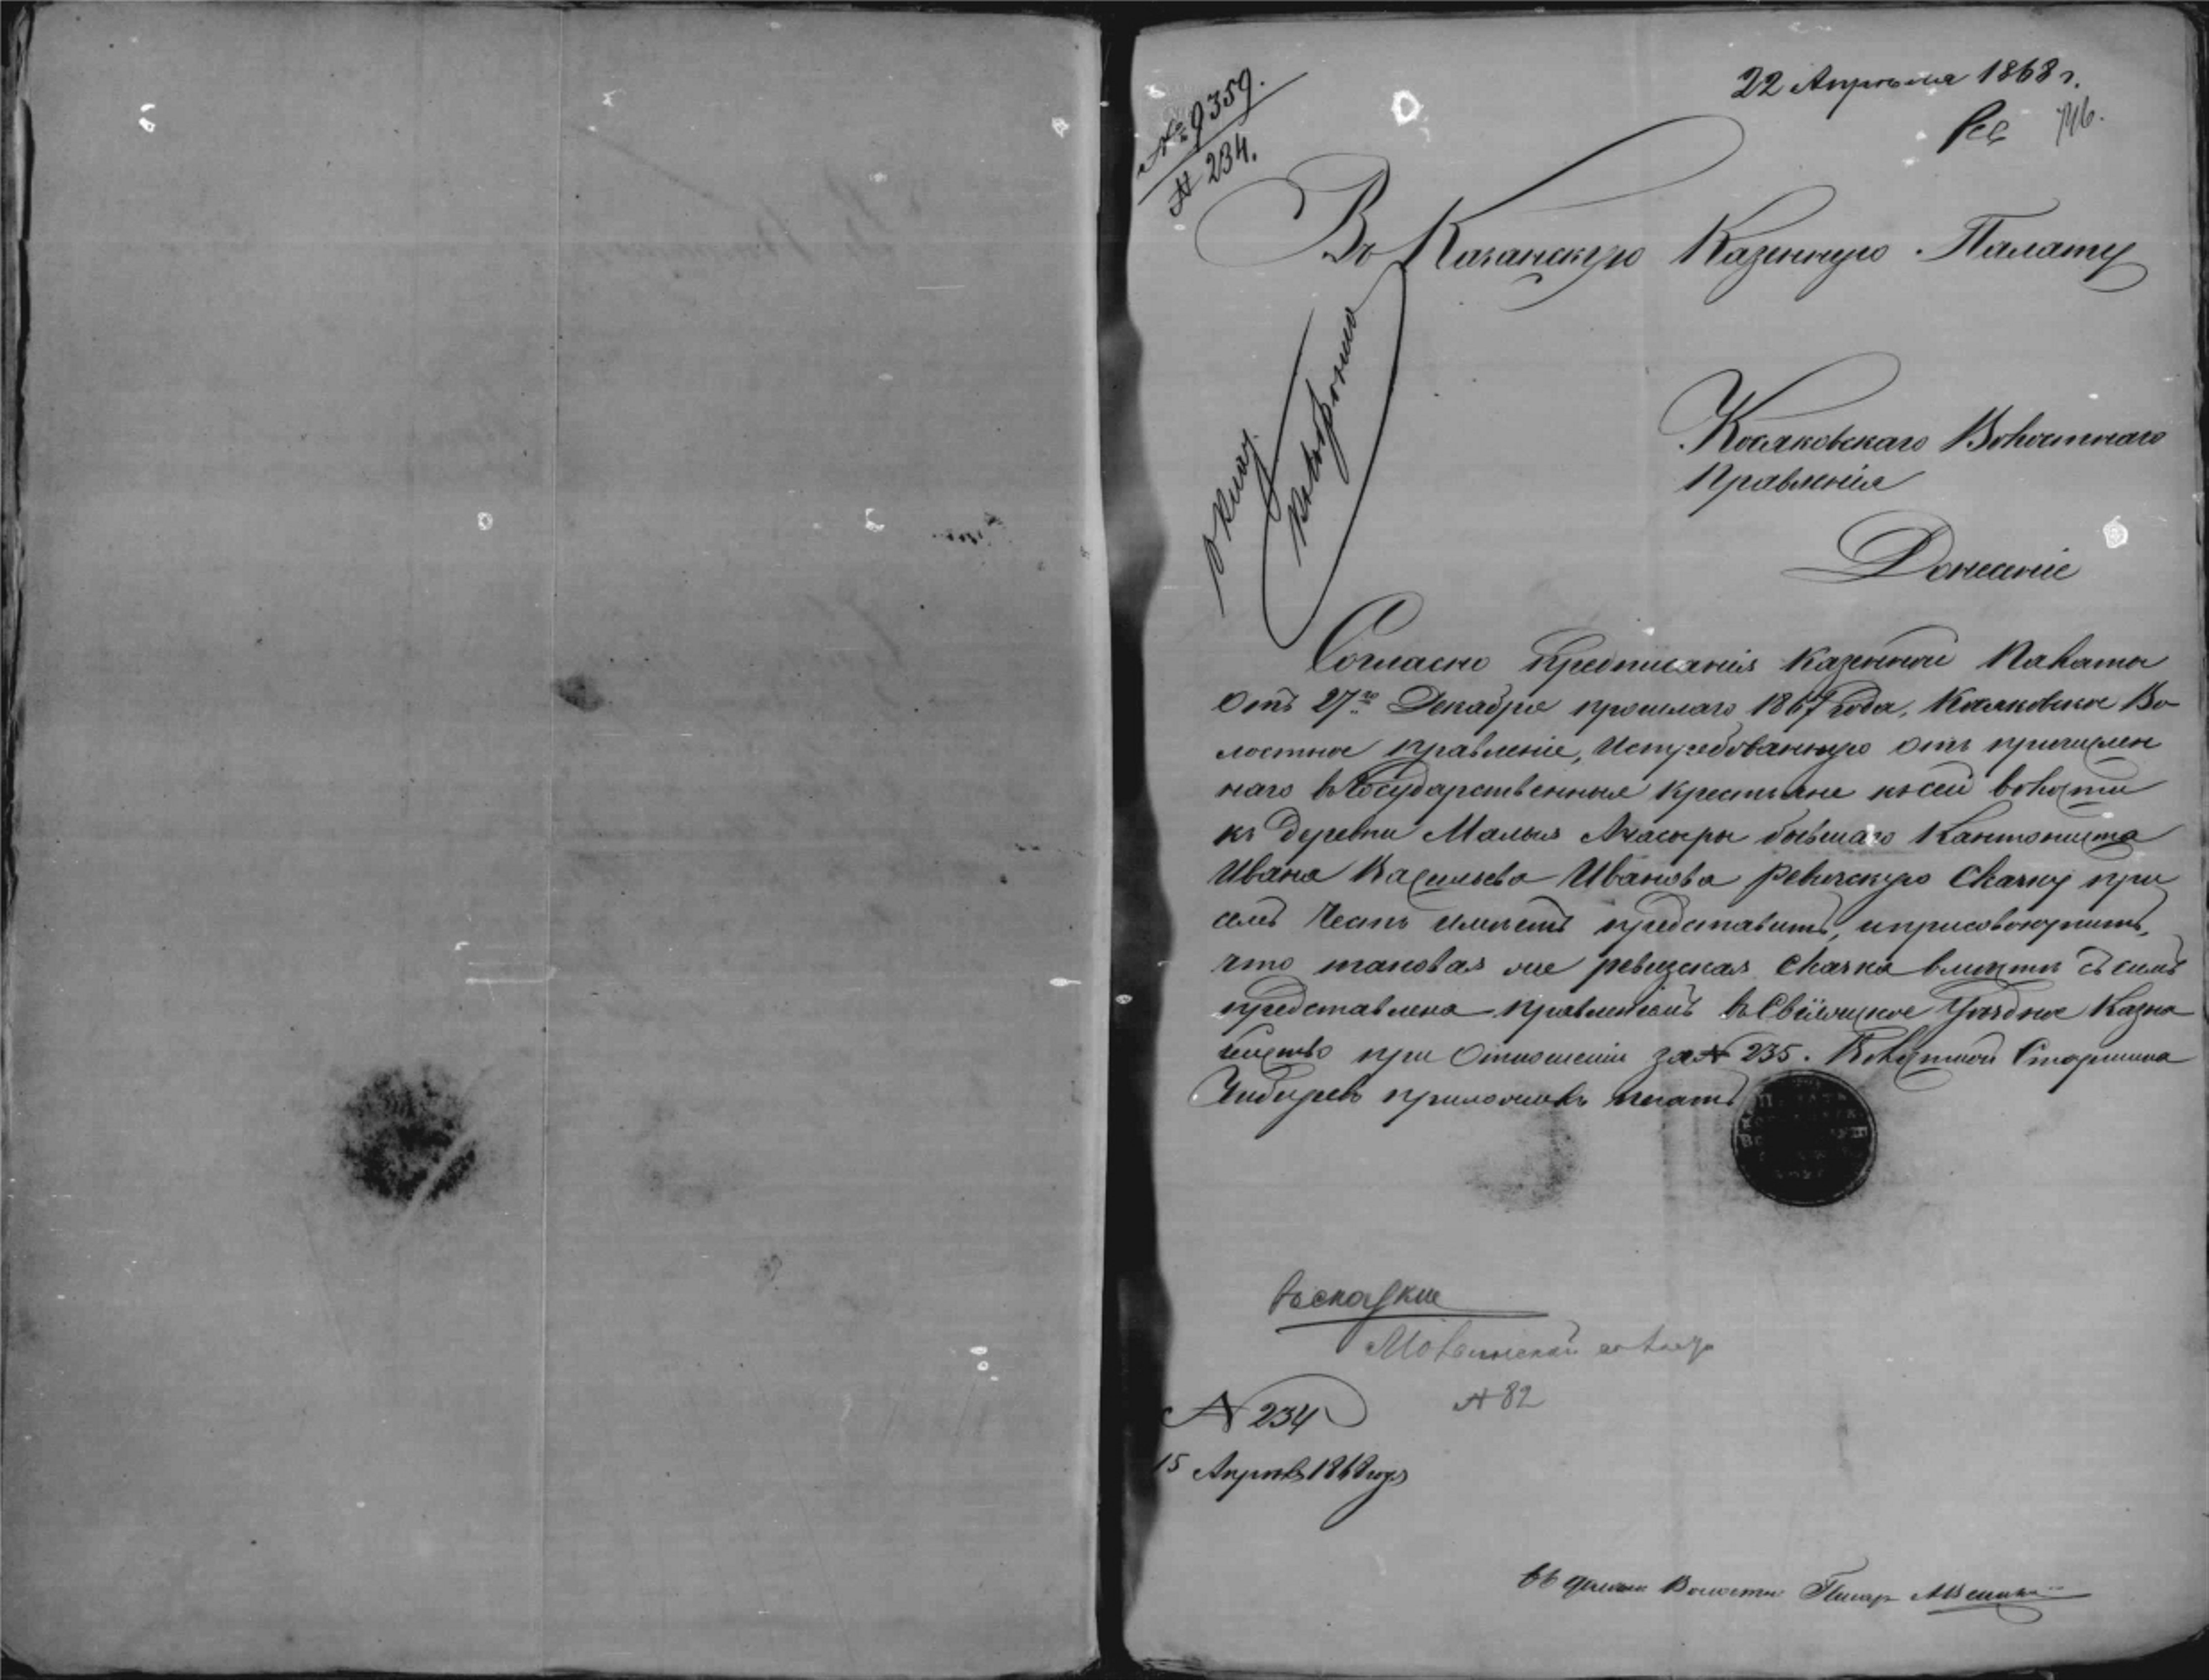 22 Апрѣля 1868 г.
№ 9359.
№ 234.
Въ Казанскую Казенную Палату
Кошковскаго Волостнаго
Правленія
Донесеніе
Согласно предписанія Казенной Палаты
отъ 27го Декабря прошлаго 1867 года, Во-
лостное правленіе, истребованную отъ причислен
наго въ Государственныя крестьяне къ сей волости
къ деревни Малыя Ачасыры бывшаго Кантониста
Ивана Васильева Иванова ревизскую сказку при
семъ честь имѣетъ представить, и присовокупить,
что таковая же ревизская сказка вмѣсте съ симъ
представлена правленіемъ въ Свіяжское Уѣздное Казна
чейство при отношеніи за № 235. Волостной Старшина
приложилъ печать
Въ сказкие
№ 82
№ 234
15 Апрѣля 1868 года
Волостн Писарь